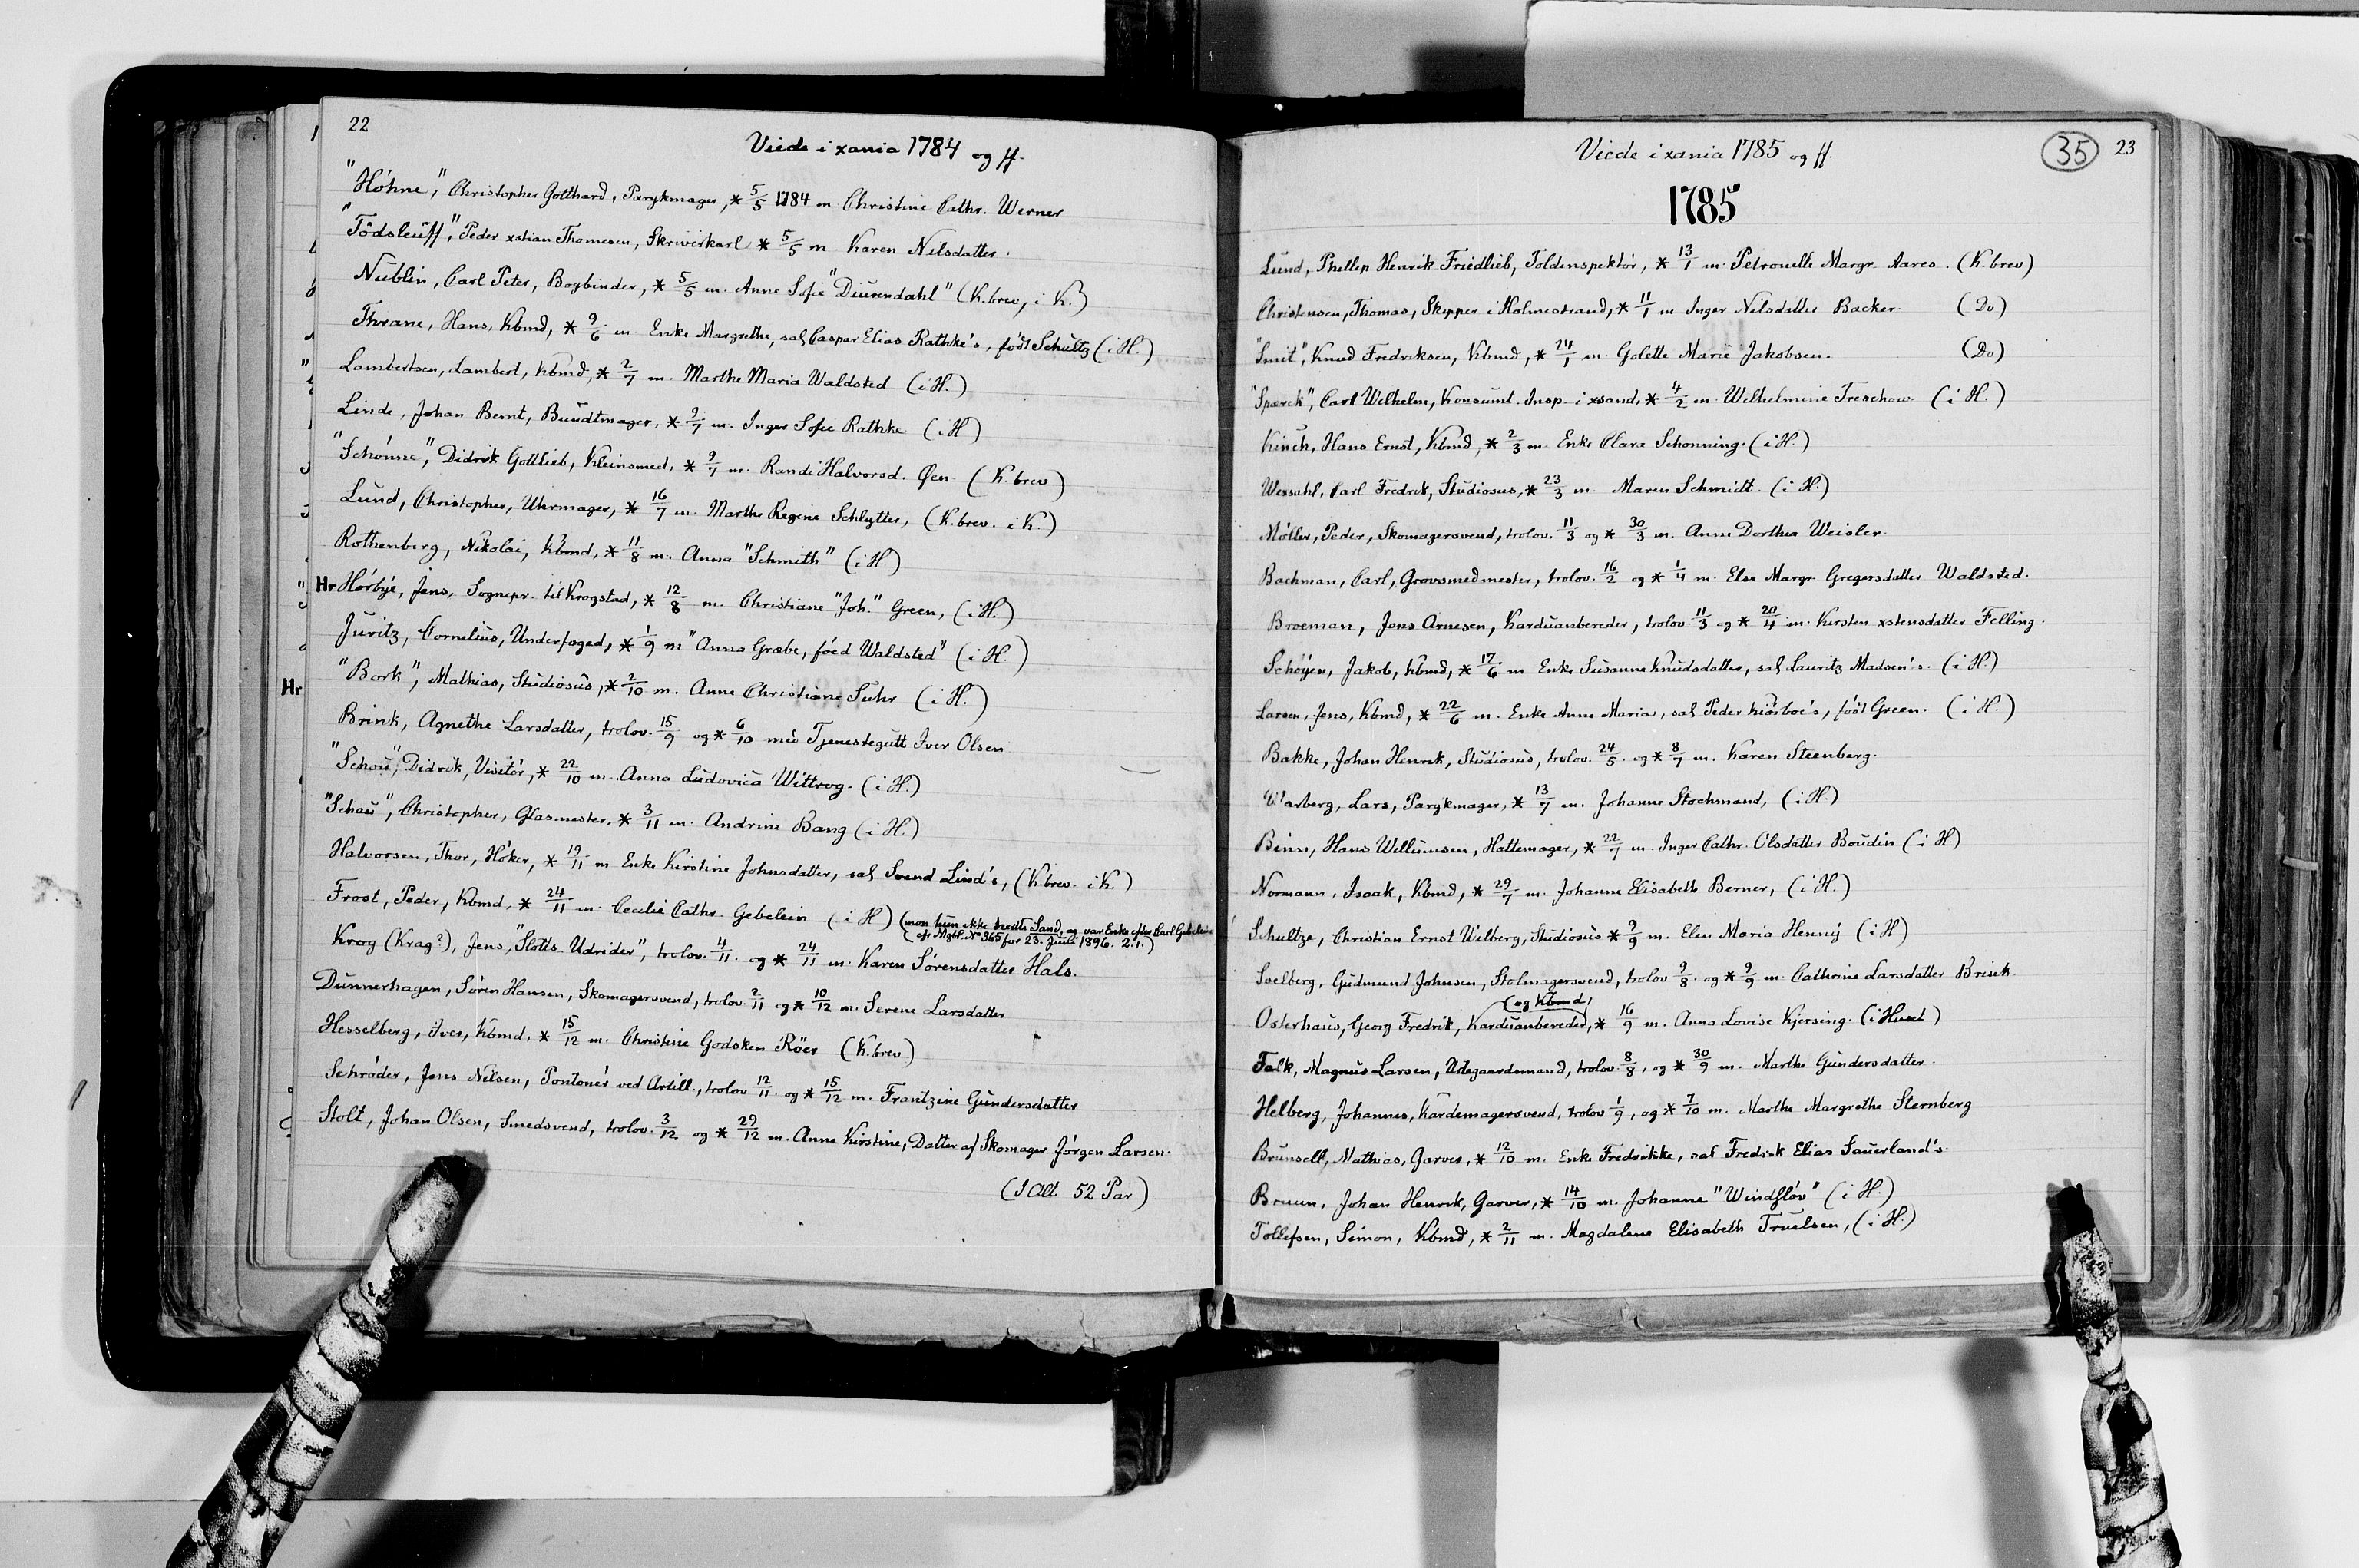 22
Viede i xania 1784 og ff.
"Höhne", Christopher Gotthard, Parykmager, * 5/5 1784 m Christine Cathr. Werner
"Tödsleüff", Peder xstian Thomesen, Skriverkarl * 5/5 m Karen Nilsdatter.
Nüblin, Carl Peter, Bogbinder, * 5/5 m. Anne Sofie "Diürendahl" (K.brev, i K.)
Thrane, Hans, Kbmd, * 9/6 m Enke Margrethe, sal Caspar Elias Rathke's, född Schültz (i H.)
Lambertsen, Lambert, Kbmd, * 2/7 m. Marthe Maria Waldsted (i H.)
Linde, Johan Bernt, Bündtmager, * 9/7 m. Inger Sofie Rathke (i H)
"Schönne", Didrik Gottlieb, Kleinsmed, * 9/7 m. Randi Halvorsd. Øen (K. brev)
Lünd, Christopher, Uhrmager, * 16/7 m. Marthe Regine Schlytter, (K.brev. i K.)
Rothenberg, Nikolai, Kbmd, * 11/8 m. Anna "Schmith" (i H)
Hr Hörbye, Jens, Sognepr. til Krogstad, * 12/8 m. Christiane "Joh." Green, (i H.)
Jüritz, Cornelius, Underfoged, * 1/9 m "Anna Græbe, föed Waldsted" (i H.)
Hr "Bork", Mathias, Stüdiosüs, * 2/10 m. Anne Christiane Sühr (i H.)
Brink, Agnethe Larsdatter, trolov. 15/9 og * 6/10 med Tjenestegütt Iver Olsen
"Schoü", Didrik, Visitör, * 22/10 m Anna Lüdovica Wittrog. (i H.)
"Schaü", Christopher, Glasmester, * 3/11 m. Andrine Bang (i H.)
Halvorsen, Thor, Höker, * 19/11 m Enke Kirstine Johnsdatter, sal Svend Lind's, (K.brev. i K.)
Frost, Peder, Kbmd, * 24/11 m. Cecilie Cathr. Gebelein (i H) (mon hün ikke hedte Sand, og var Enke efter Carl Gebelein
efr Mgbl. No 965 for 23. Jüli 1896. 2.1.)
Krog (Krag?), Jens, "Slotts-Udrider", trolov. 4/11 og * 24/11 m. Karen Sörensdatter Hals.
Dünnerhagen, Sören Hansen, Skomagersvend, trolov. 2/11 og * 10/12 m. Serene Larsdatter
Hesselberg, Iver, Kbmd, * 15/12 m. Christine Godsken Röer (K.brev)
Schröder, Jens Nilsen, Pontonér ved Artill., trolov 12/11 og * 15/12 m. Frantzine Gündersdatter
Stolt, Johan Olsen, Smedsvend, trolov. 3/12 og * 29/12 m. Anne Kirstine, Datter af Skomager Jörgen Larsen.
(I Alt 52 Par)
Viede i xania 1785 og ff.
35 23
1785
Lünd, Phillip Henrik Friedlieb, Toldinspektör, * 13/1 m. Petronelle Margr. Aares. (K.brev)
Christensen, Thomas, Skipper i Holmestrand, * 11/1 m Inger Nilsdatter Backer. (Do)
"Smit", Knud Fredriksen, Kbmd, * 24/1 m Golette Marie Jakobsen. (Do)
"Spærck", Carl Wilhelm, Konsumt. Insp. i xsand, * 4/2 m. Wilhelmine Treschow. (i H.)
Kinch, Hans Ernst, Kbmd, * 2/3 m. Enke Clara Schonning. (i H.)
Wessahl, Carl Fredrik, Stüdiosus, * 23/3 m. Maren Schmidt. (i H.)
Möller, Peder, Skomagersvend, trolov. 11/3 og * 30/3 m. Anne Dorthea Weisler.
Bachman, Carl, Grovsmedmester, trolov. 16/2 og * 1/4 m. Else Margr. Gregersdatter Waldsted.
Broeman, Jens Arnesen, Kardüanbereder, trolov. 11/3 og * 20/4 m. Kirsten xstensdatter Felling.
Schöyen, Jakob, Kbmd, * 17/6 m Enke Susanne Knüdsdatter, sal Lauritz Madsen's. (i H.)
Larsen, Jens, Kbmd, * 22/6 m. Enke Anne Maria, sal Peder Kiörboe's, född Green. (i H.)
Bakke, Johan Henrik, Stüdiosüs, trolov. 24/5 og * 8/7 m. Karen Steenberg.
Warberg, Lars, Parykmager, * 13/7 m. Johanne Stochmand, (i H.)
Binn, Hans Willumsen, Hattemager, * 22/7 m. Inger Cathr. Olsdatter Boüdin (i H)
Normann, Isaak, Kbmd, * 29/7 m. Johanne Elisabeth Berner, (i H.)
Schultze, Christian Ernst Wilberg, Stüdiosüs * 9/9 m. Elen Maria Henny (i H)
Soelberg, Güdmund Johnsen, Stolmagersvend, trolov 9/8 og * 9/9 m. Cathrine Larsdatter Brisck
(og Kbmd)
Osterhaüs, Georg Fredrik, Kardüanbereder, * 16/9 m. Anna Lovise Kjersing. (i Huset)
Falk, Magnüs Larsen, Urtegaardsmand, trolov. 8/8, og * 30/9 m. Marthe Gündersdatter.
Helberg, Johannes, Kardemagersvend, trolov 1/9, og * 7/10 m. Marthe Margrethe Sternberg
Brünsell, Mathias, Garver, * 12/10 m. Enke Fredrikke, sal Fredrik Elias Saüerland's.
Bruun, Johan Henrik, Garver, * 14/10 m. Johanne "Windflöv" (i H.)
Tollefsen, Simon, Kbmd, * 2/11 m. Magdalene Elisabeth Truelsen, (i H.)